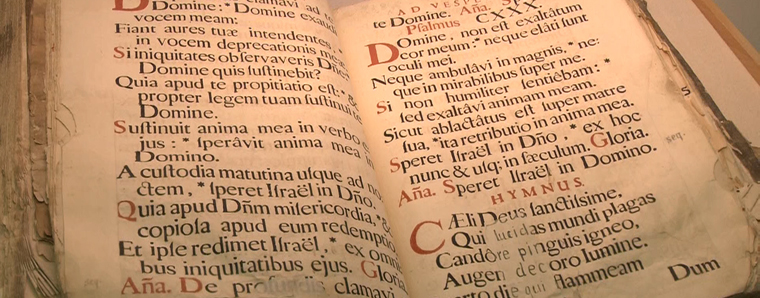 Domine: * Domine exaudi
vocem meam:
Fiant aures tuæ intendentes, *
in vocem deprecationis meæ
Si iniquitates observaveris Dñe:*
Domine quis sustinebit?
Quia apud te propitiatio est: * &
propter legem tuam sustinui te
Domine.
Sustinuit anima mea in verbo e
jus: * sperâvit anima mea in
Domino.
A custodia matutina usque ad no
ctem, * speret Israël in Dño.
Quia apud Dñm misericordia, * &
copiosa apud eum redemptio
Et ipse redimet Israël, * ex omni
bus iniquitatibus ejus. Gloria
Aña. De profundis clamavi
AD VESP
te Domine. Aña.
Psalmus CXXX.
Domine, non est exaltâtum
cor meum: * neque elâti sunt
oculi mei.
Neque ambulâvi in magnis, * ne:
que in mirabilibus super me.
Si non humiliter sentiêbam: *
sed exaltâvi animam meam.
Sicut ablactâtus est super matre
sua, * ita retributio in anima mea.
Speret Israël in Dño, * ex hoc
nunc & usq; in sæculum. Gloria. seq.
Aña. Speret Israël in Domino.
HYMNUS.
CÆli Deus sanctissime,
Qui lucidas mundi plagas
Candôre pinguis igneo,
Augen decoro lumine.
die qui flammeam
Dum
5